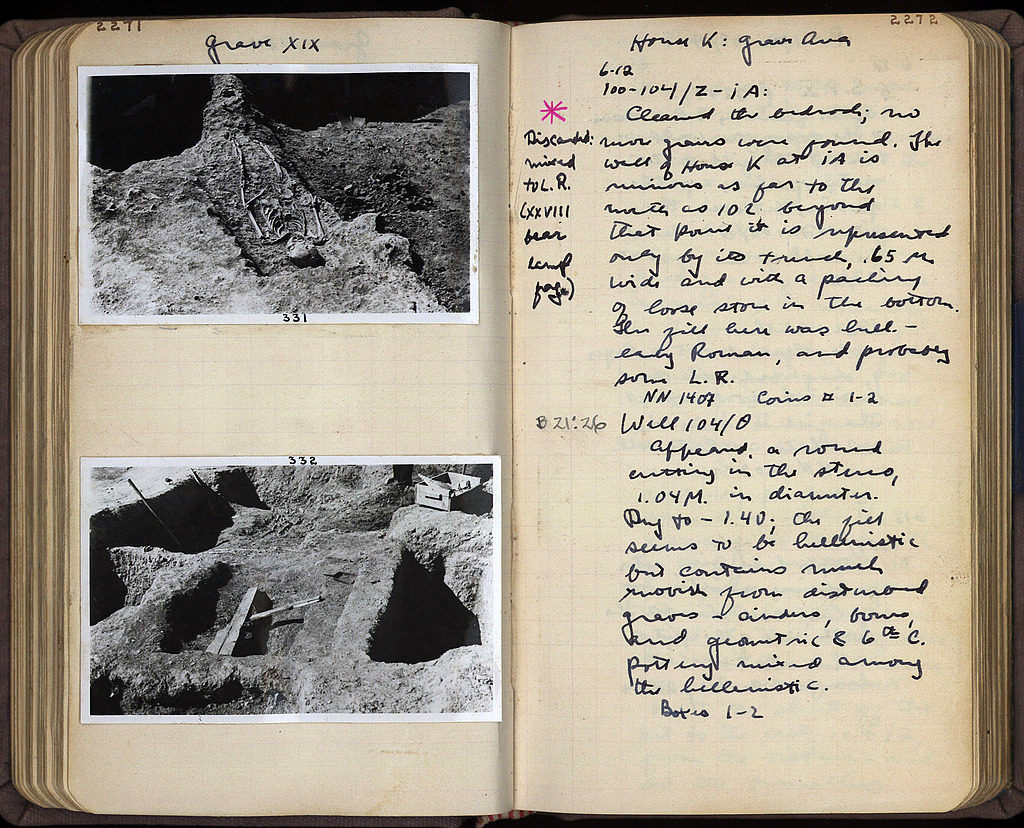 2271
Grave XIX
331
332
2272
House K: Grave Area
6-12
100-104/Z-ΙΑ:
Cleaned the bedrock; no
more graves were found. The
wall of House K at ΙΑ is
missing as far to the
north as 102 beyond
that point it is represented
only by its trench, .65 m
wide and with a packing
of loose stone in the bottom.
The fill here was hell-
early Roman, and probably
some L.R.
NN 1407 Coins # 1-2
*
Discarded:
mixed
to L.R.
(XXVIII
bear
lamp
page)
B 21:26 Well 104/Θ
Appeared, a round
cutting in the stereo,
1.04 M. in diameter.
Dug to - 1.40; the fill
seems to be hellenistic
but contains much
rubbish from disturbed
graves - cinders, bones,
and geometric & 6th C.
pottery mixed among
the hellenistic.
Boxes 1-2